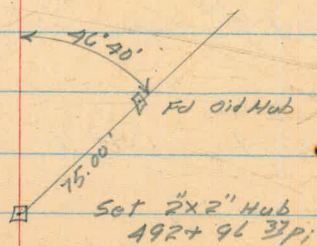 46°40'
Fd Old Hub
75.00'
Set 2"x2" Hub
492+96 33 Pi